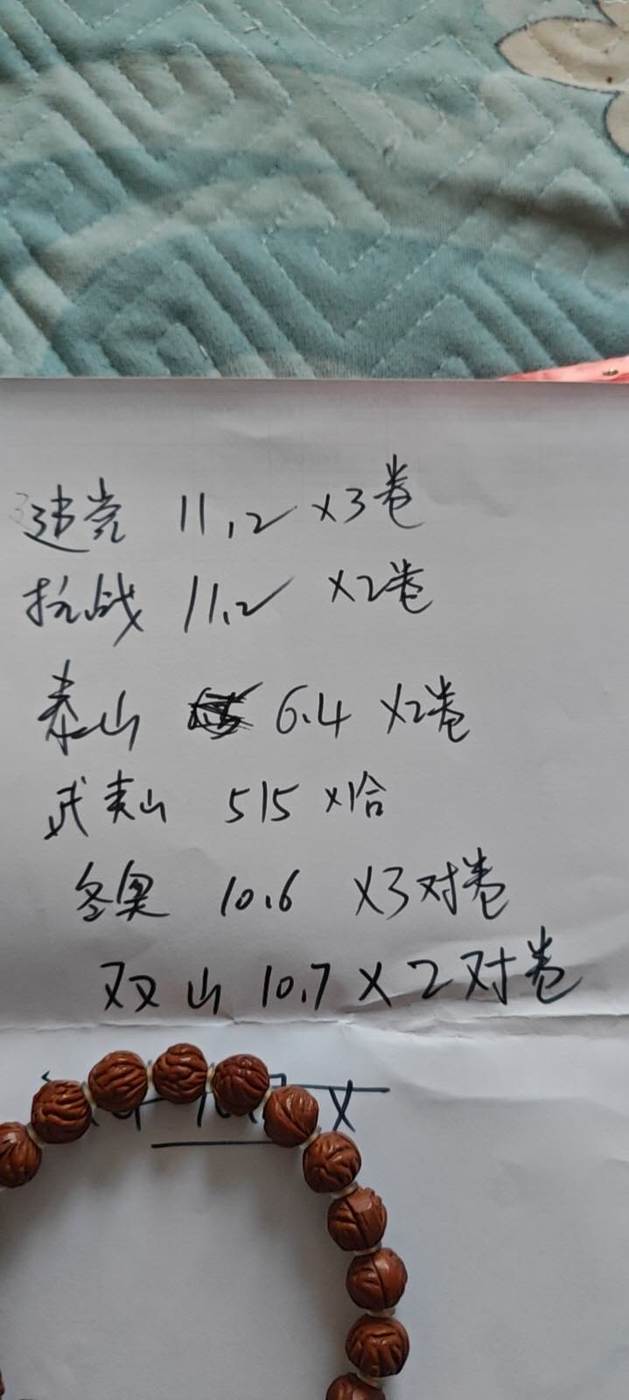 建党 11.2 ×3卷
抗战 11.2 ×2卷
泰山 6.4 ×2卷
武夷山 515 ×1合
冬奥 10.6 ×3对卷
双山 10.7 × 2对卷